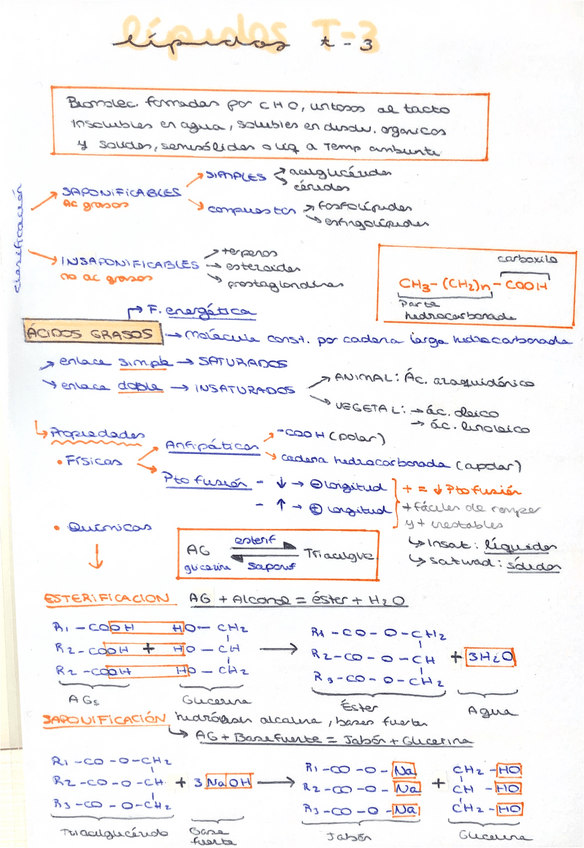 lípidos T-3
lípidos t-3
Biomolec. formadas por CHO, untosos al tacto
insolubles en agua, solubles en disolv. organicos
y solidos, semisólidos o liq a temp ambiente
Clasificación
SAPONIFICABLES
Ac grasos
SIMPLES
acilglicéridos
céridos
compuestos
fosfolípidos
esfingolípidos
INSAPONIFICABLES
no ac grasos
terpenos
esteroides
prostaglandinas
carboxilo
CH₃-(CH₂)n-COOH
Parte
hidrocarbonada
F. energética
ÁCIDOS GRASOS → molécula const. por cadena larga hidrocarbonada
enlace simple → SATURADOS
enlace doble → INSATURADOS
ANIMAL: Ác. araquidónico
VEGETAL: → ác. oleico
→ ác. linoleico
Propiedades
• Físicas
Anfipáticos
-COOH (polar)
cadena hidrocarbonada (apolar)
Pto fusión - ↓ → ⊖ longitud
- ↑ → ⊕ longitud
+ = ↓ Pto fusión
+ fáciles de romper
y + inestables
↳ Insat: líquidos
↳ saturad: sólidos
• Químicas
AG
glicerina
esterif
saponif
Triacilglic
ESTERIFICACION AG + Alcohol = éster + H₂O
R₁ - COOH HO - CH₂
R₂ - COOH + HO - CH
R₂ - COOH HO - CH₂
→
R₁ - CO - O - CH₂
R₂ - CO - O - CH
R₃ - CO - O - CH₂
+ 3H₂O
AGs
Glicerina
Éster
Agua
SAPONIFICACIÓN hidrólisis alcalina, bases fuertes
↳ AG + Base fuerte = Jabón + Glicerina
R₁ - CO - O - CH₂
R₂ - CO - O - CH
R₃ - CO - O - CH₂
+ 3 NaOH →
R₁ - CO - O - Na
R₂ - CO - O - Na
R₃ - CO - O - Na
+
CH₂ - HO
CH - HO
CH₂ - HO
Triacilglicérido
Base
fuerte
Jabón
Glicerina